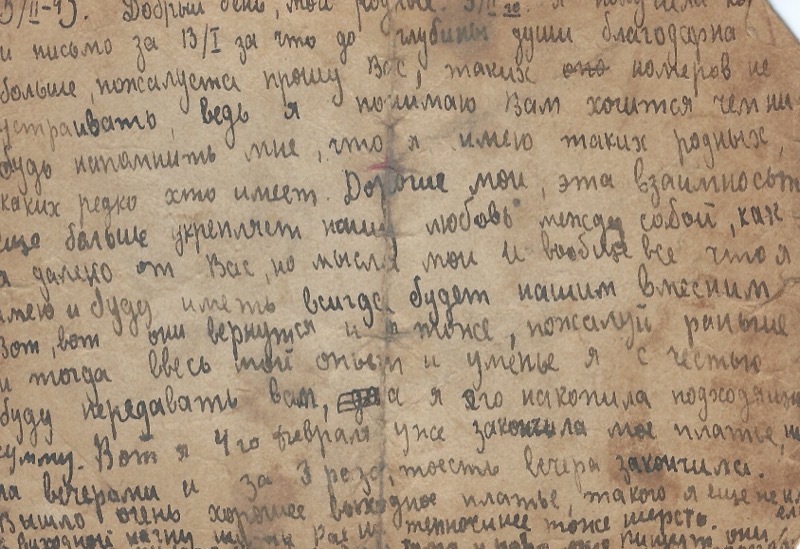 5/II-43. Добрый день, мои родные. 5/II я получила
и письмо за 13/I за что до глубины души благодарна
больше, пожалуста прошу Вас, таких номеров не
устраивать, ведь я понимаю Вам хочится чем ни-
будь напомнить мне, что я имею таких родных,
каких редко хто имеет. Дорогие мои, эта взаимность
ещё больше укрепляет нашу любовь между собой, как
я далеко от Вас, но мысли мои и вообще все что я
имею и буду иметь всигда будет нашим вмесним
Вот, вот они вернутся и я тоже, пожалуй раньше
и тогда ввесь мой опыт и уменье я с честью
буду передавать вам, а я его накопила подходящую
сумму. Вот я 4го февраля уже закончила мое платье,
ла вечерами и за 3 раза, тоесть вечера закончила.
Вышло очень хорошее выходное платье, такого я еще не
выходной начну тепночнее тоже шерсть.
пишут они,